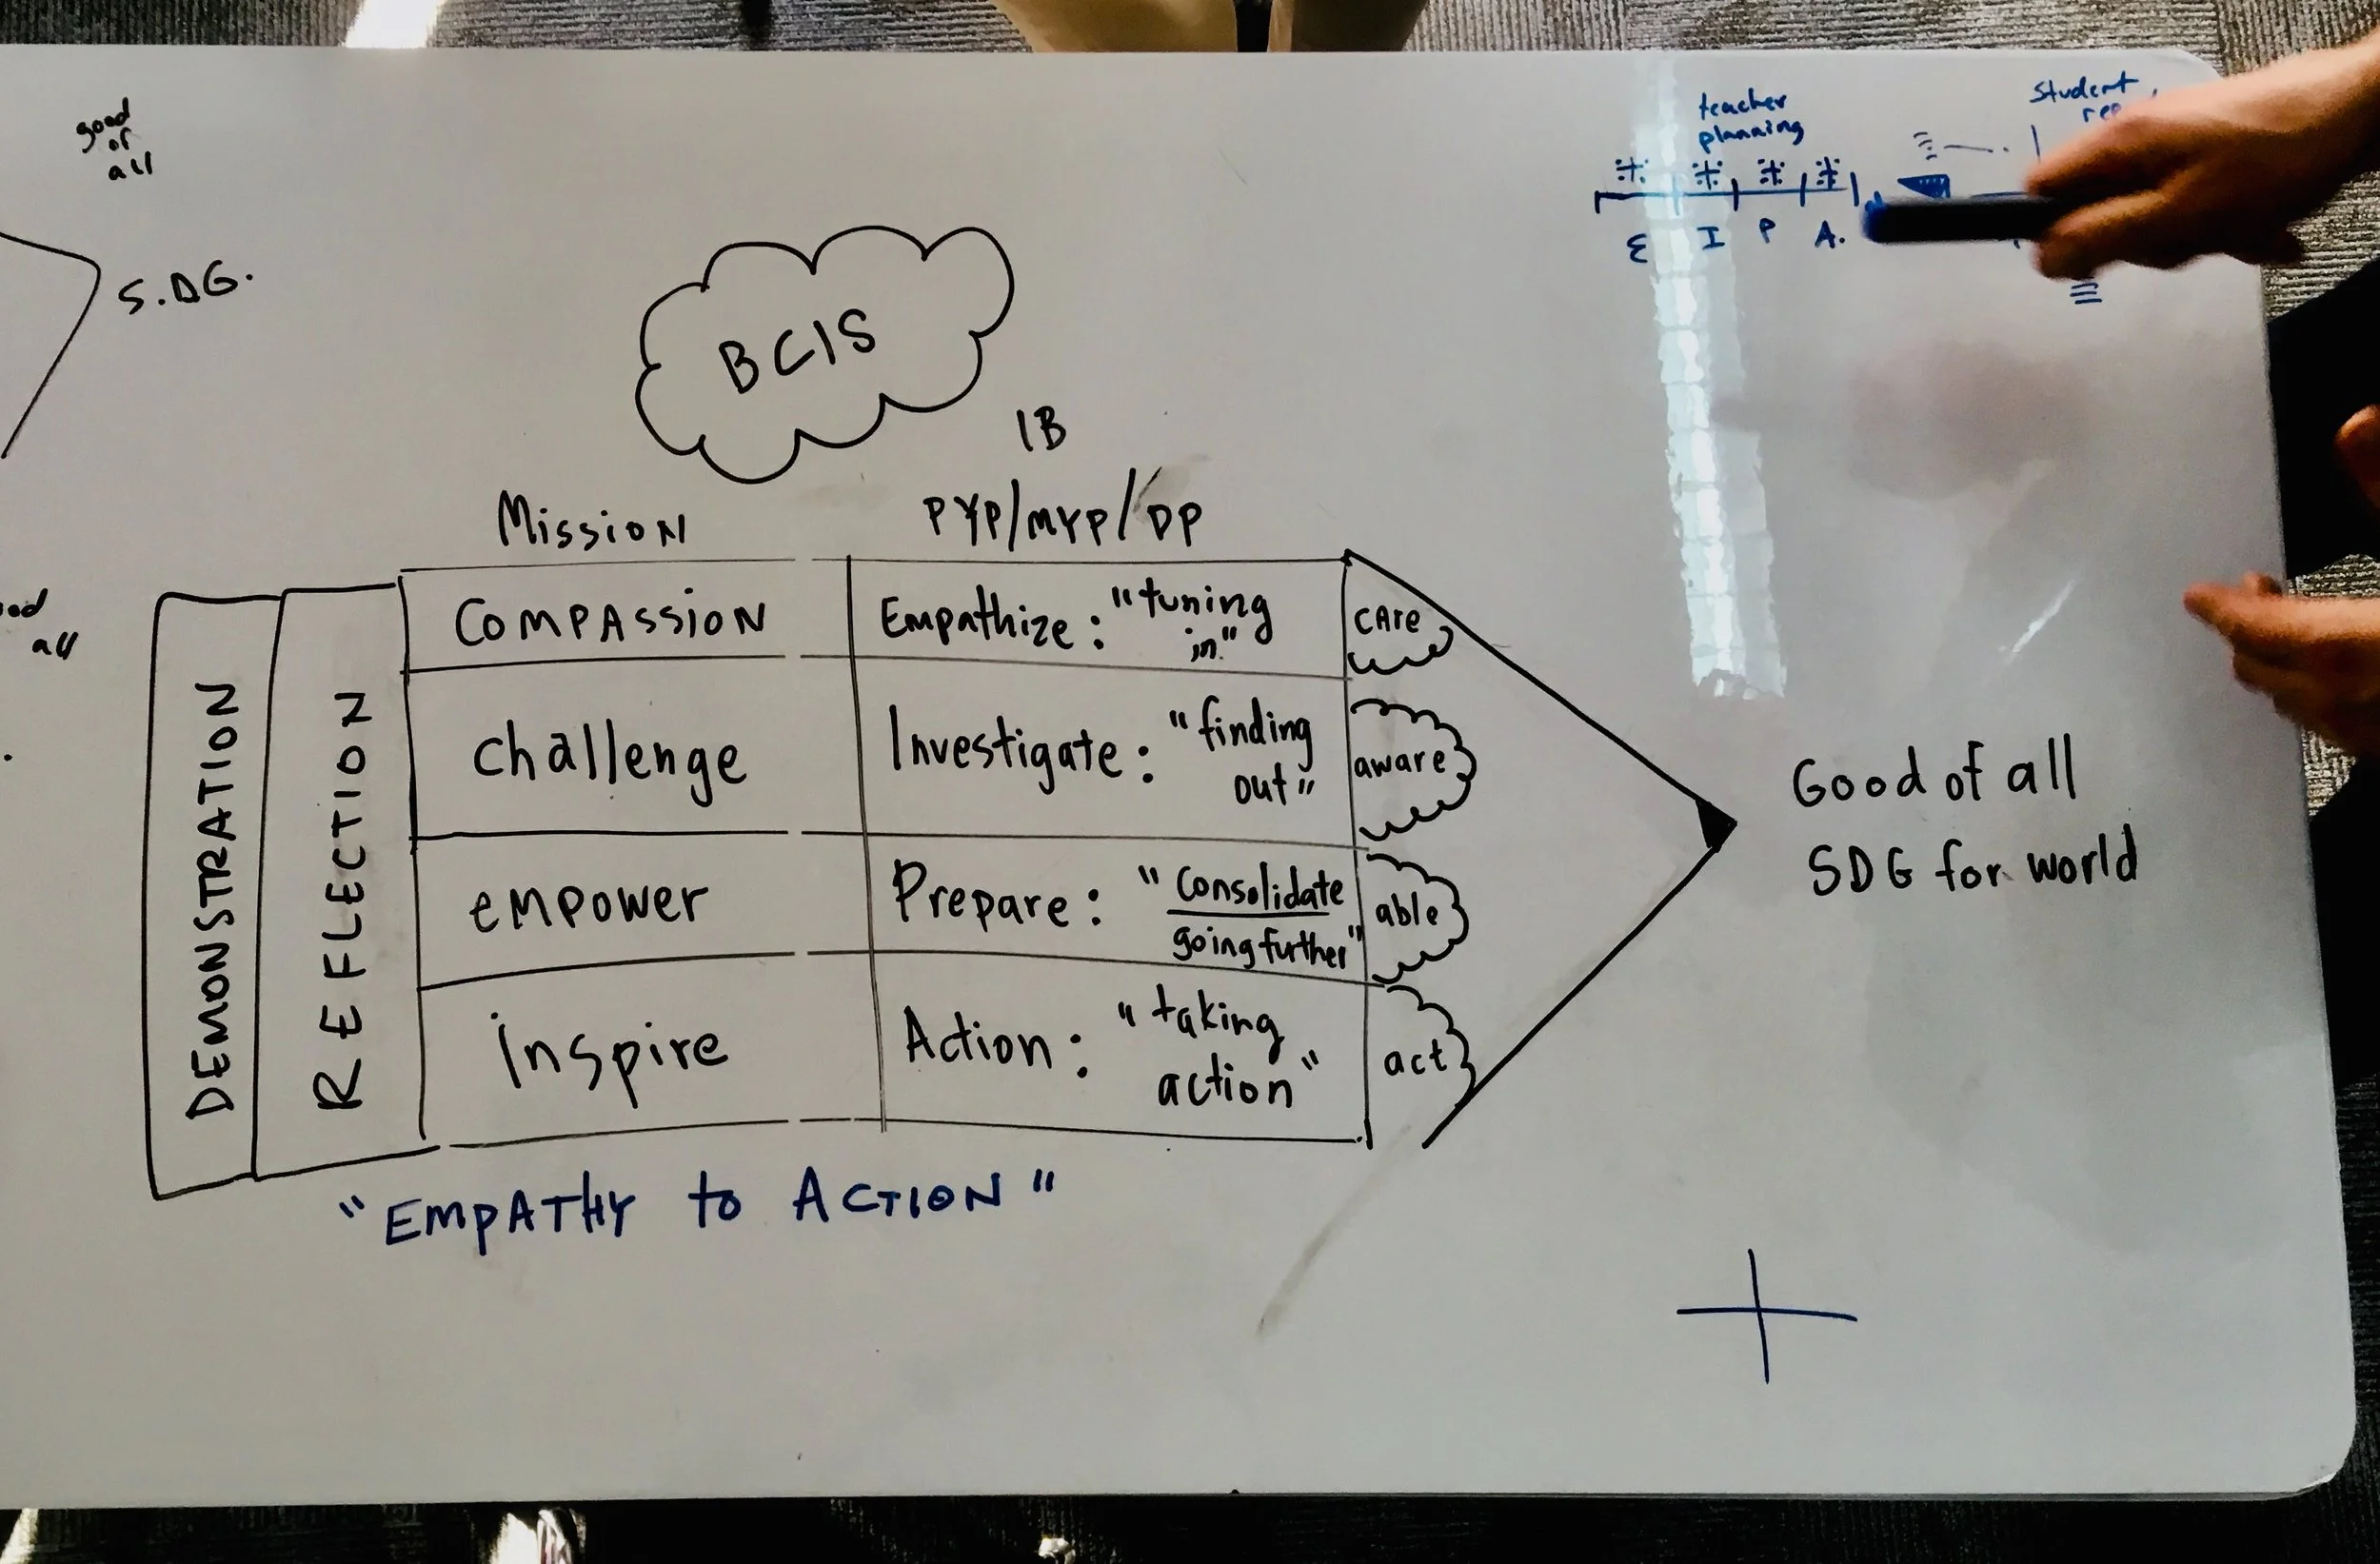 good
of
all
S.DG.
all
teacher
planning
E I P A.
Student
BCIS
IB
Mission
PYP/MYP/DP
DEMONSTRATION
REFLECTION
COMPASSION
Empathize: "tuning
in."
CAre
challenge
Investigate: "finding
out"
aware
empower
Prepare: "consolidate
going further"
able
inspire
Action: "taking
action"
act
"EMPATHY to ACTION"
Good of all
SDG for world